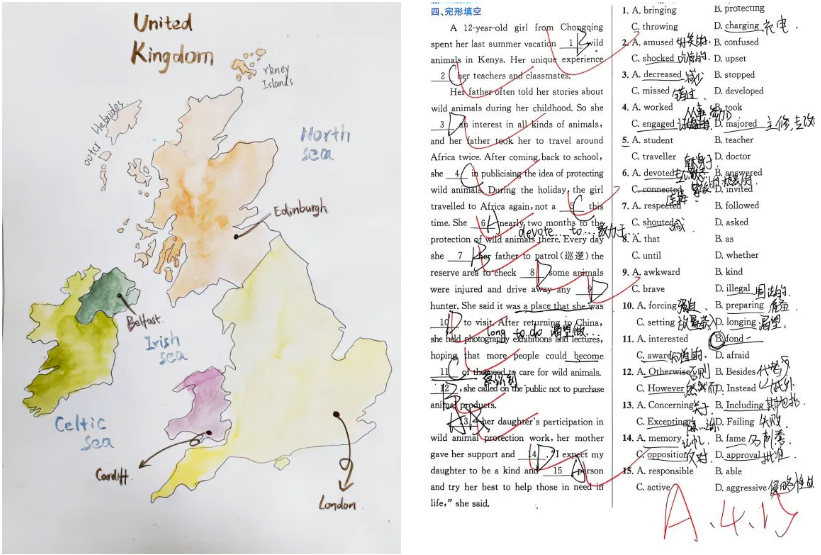 United
Kingdom
rkney
Islands
Outer Hebrides
North
sea
Edinburgh
Belfast
Irish
sea
Celtic
sea
Cardiff
London
四、完形填空
A 12-year-old girl from Chongqing
spent her last summer vacation 1 wild
animals in Kenya. Her unique experience
2 C her teachers and classmates.
Her father often told her stories about
wild animals during her childhood. So she
3 D an interest in all kinds of animals,
and her father took her to travel around
Africa twice. After coming back to school,
she 4 C in publicising the idea of protecting
wild animals. During the holiday, the girl
travelled to Africa again, not a 5 C this
time. She 6 A nearly two months to the
devote...to...致力于
protection of wild animals there. Every day
she 7 B her father to patrol (巡逻) the
reserve area to check 8 D some animals
were injured and drive away any 9 D
hunter. She said it was a place that she was
10 D to visit. After returning to China,
long to do 渴望做...
she held photography exhibitions and lectures,
hoping that more people could become
11 C of the need to care for wild animals.
12, she called on the public not to purchase
animal products.
13 A her daughter's participation in
wild animal protection work, her mother
gave her support and 14 D. "I expect my
daughter to be a kind and 15 A person
and try her best to help those in need in
life," she said.
1. A. bringing B. protecting
C. throwing D. charging 充电
2. A. amused B. confused
C. shocked D. upset
3. A. decreased 减少 B. stopped
C. missed 错过 D. developed
4. A. worked B. took
C. engaged D. majored 主修,专攻
5. A. student B. teacher
C. traveller D. doctor
6. A. devoted B. answered
C. connected D. invited
7. A. respected B. followed
C. shouted 喊 D. asked
8. A. that B. as
C. until D. whether
9. A. awkward B. kind
C. brave D. illegal
10. A. forcing 强迫 B. preparing 准备
C. setting D. longing 渴望
11. A. interested B. fond
C. aware D. afraid
12. A. Otherwise 否则 B. Besides
C. However 然而 D. Instead
13. A. Concerning 关于 B. Including 其中包括
C. Excepting D. Failing 失败
14. A. memory 记忆 B. fame
C. opposition 反对 D. approval 批准
15. A. responsible B. able
C. active D. aggressive
A.4.15